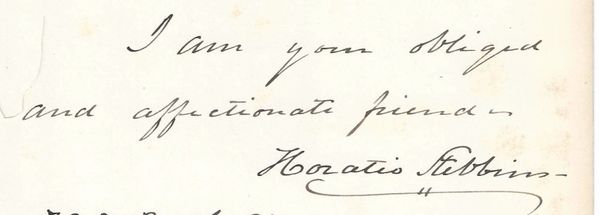 I am your obliged
and affectionate friend –
Horatio Stebbins –